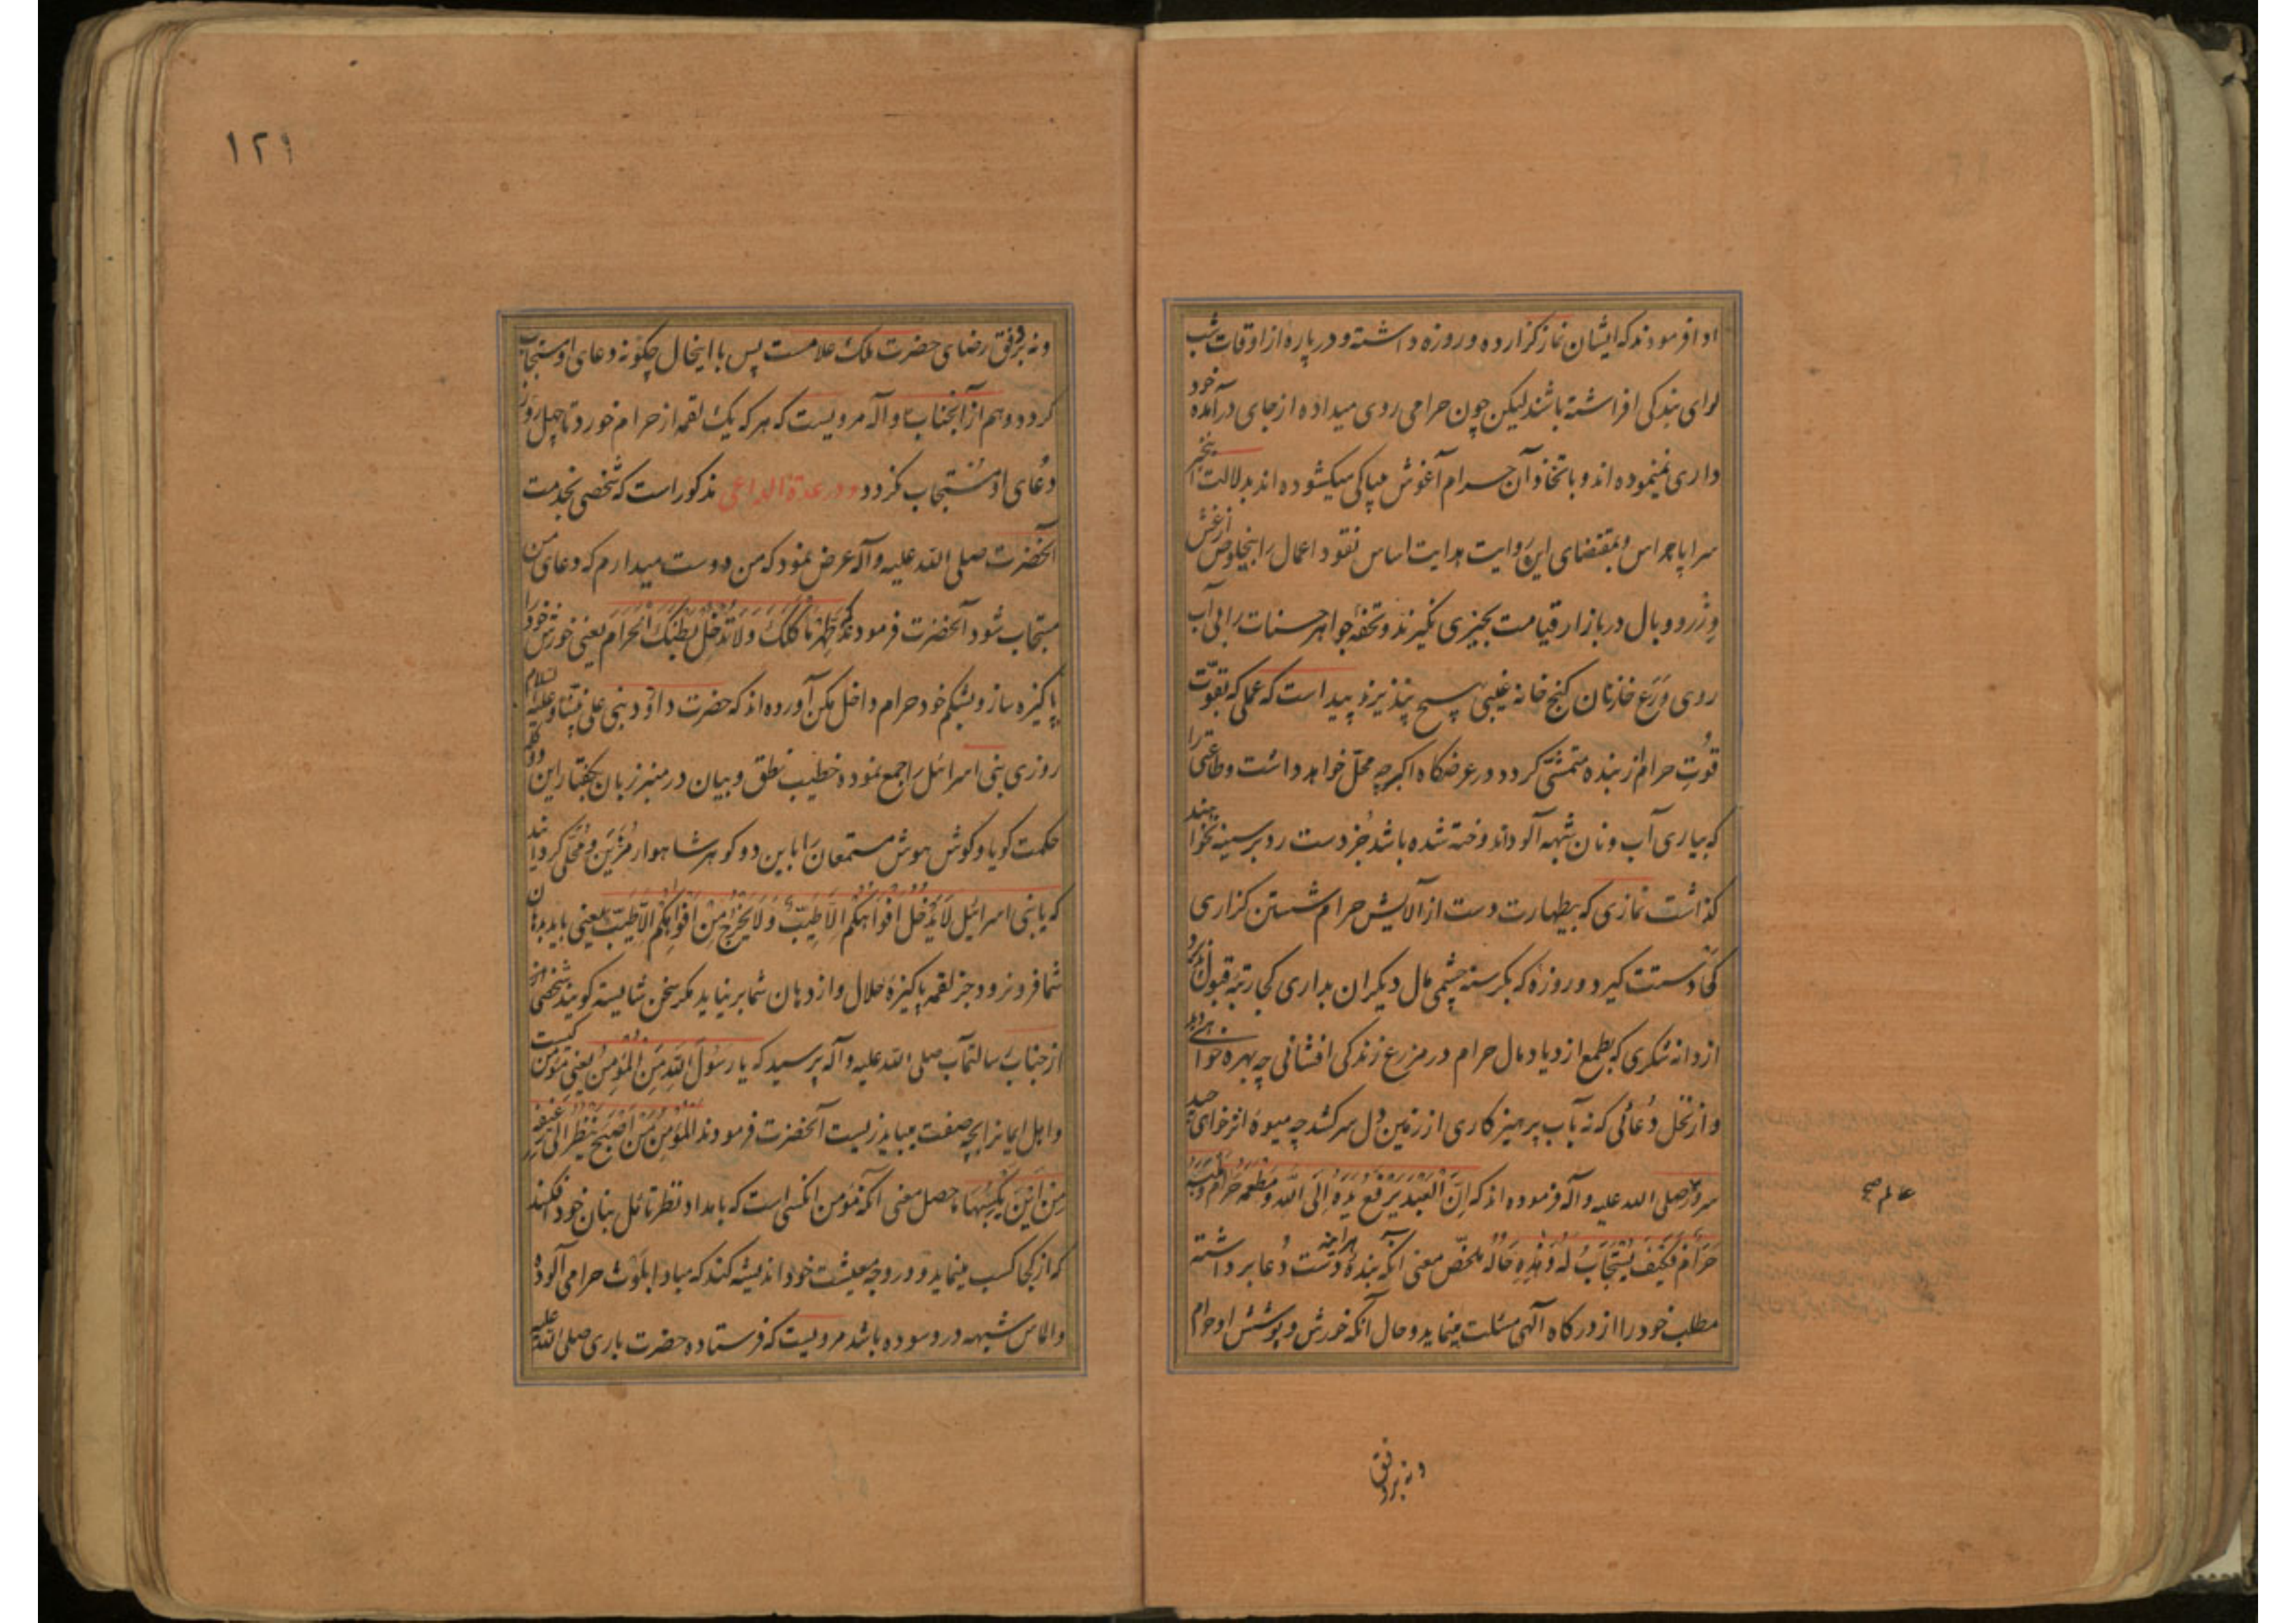 اوا فرمودند که ایشان نماز گزارده و روزه داشته و در پارهٔ از اوقات شب
لوای بندکی افراشته باشند لیکن چون حرامی روی میداده از جای درآمده خود
داری نمینموده اند و باتخاذ آن حرام آغوش میباکی میکشوده اند بدلالت این خبر
سراپا هراس و بمقتضای این روایت هدایت اساس نقود اعمال را بیخلوص از غش
وزر و وبال در بازار قیامت بچیزی نگیرند و تحفهٔ جواهر حسنات را بی آب
روی ورع خازنان کنج خانه غیبی بهیچ نپذیرند پیداست که عملی که بقوت
قوت حرام از بنده متمشی کردد در عرضکاه اکبر چه محل خواهد داشت و طاعتی را
که بیاری آب و نان شبهه آلود اندوخته شده باشد جز دست رد بر سینه نخواهند
گذاشت نمازی که بیطهارت دست از آلایش حرام شستن کزاری
کی دستت کیرد و روزهٔ که بکرسنه چشمی مال دیکران بداری کجا رتبه قبول پذیرد
از دانه شکری که بطمع ازدیاد مال حرام در مزرع زندکی افشانی چه بهره خواهی دید
و از نخل دعائی که نه بآب پرهیزکاری از زمین دل سر کشد چه میوهٔ اثر خوای چید
سرور عالم صلی الله علیه و آله فرموده اند که اِنَّ الْعَبْدَ یَرْفَعُ یَدَهُ اِلَی اللّٰهِ وَ مَطْعَمُهُ حَرَامٌ وَ مَلْبَسُهُ
حَرَامٌ فَکَیْفَ یُسْتَجَابُ لَهُ وَ هٰذِهِ حَالُهُ ملخص معنی آنکه بنده دست دعا برداشته
مطلب خود را از درگاه آلهی مسئلت مینماید و حال آنکه خورش و پوشش او حرام
عالم صح
ونه بروفق
۱۲۱
ونه بروفق رضای حضرت ملک علامست پس با اینحال چگونه دعای او مستجاب
کردد و هم از آنجناب و آله مرویست که هر که یک لقمه از حرام خورد تا چهل روز
دعای او مستجاب نکردد و در عدة الداعی مذکور است که شخصی بخدمت
آنحضرت صلی الله علیه و آله عرض نمود که من دوست میدارم که دعای من
مستجاب شود آنحضرت فرمودند که طَهِّرْ مَاْکَلَکَ وَلَا تُدْخِلْ بَطْنَکَ الْحَرَامَ یعنی خورش خود را
پاکیزه ساز و بشکم خود حرام داخل مکن آورده اند که حضرت داود نبی علی نبینا و علیه السلام
روزی بنی اسرائیل را جمع نموده خطیب نطق و بیان در منبر زبان بکفتار این دو کلمه
حکمت کویا و کوش هوش مستمعان را باین دو کوهر شاهوار مزین و محلی کردانید
که یا بنی اسرائیل لَا یُدْخَلْ اَفْوَاهَکُمْ اِلَّا طَیِّبٌ وَلَا یَخْرُجْ مِنْ اَفْوَاهِکُمْ اِلَّا طَیِّبٌ یعنی باید بدهان
شما فرو نرود جز لقمهٔ پاکیزهٔ حلال و از دهان شما بر نیاید مکر سخن شایسته کویند شخصی از
از جناب رسالتمآب صلی الله علیه و آله پرسید که یا رَسُولَ اللّٰهِ مَنِ الْمُؤْمِنُ یعنی مؤمن کیست
و اهل ایمانرا بچه صفت میباید زیست آنحضرت فرمودند اَلْمُؤْمِنُ مَنْ اَصْبَحَ یَنْظُرُ اِلَی رَغِیفِهِ
مِنْ اَیْنَ یَکْسِبُهَا ماحصل معنی آنکه مؤمن آنکسی است که بامداد نظر تامل بنان خود افکند
که از کجا کسب مینماید و در وجه معیشت خود اندیشه کند که مبادا بلوث حرامی آلوده
و الماس شبهه در و سوده باشد مرویست که فرستاده حضرت باری صلی الله علیه